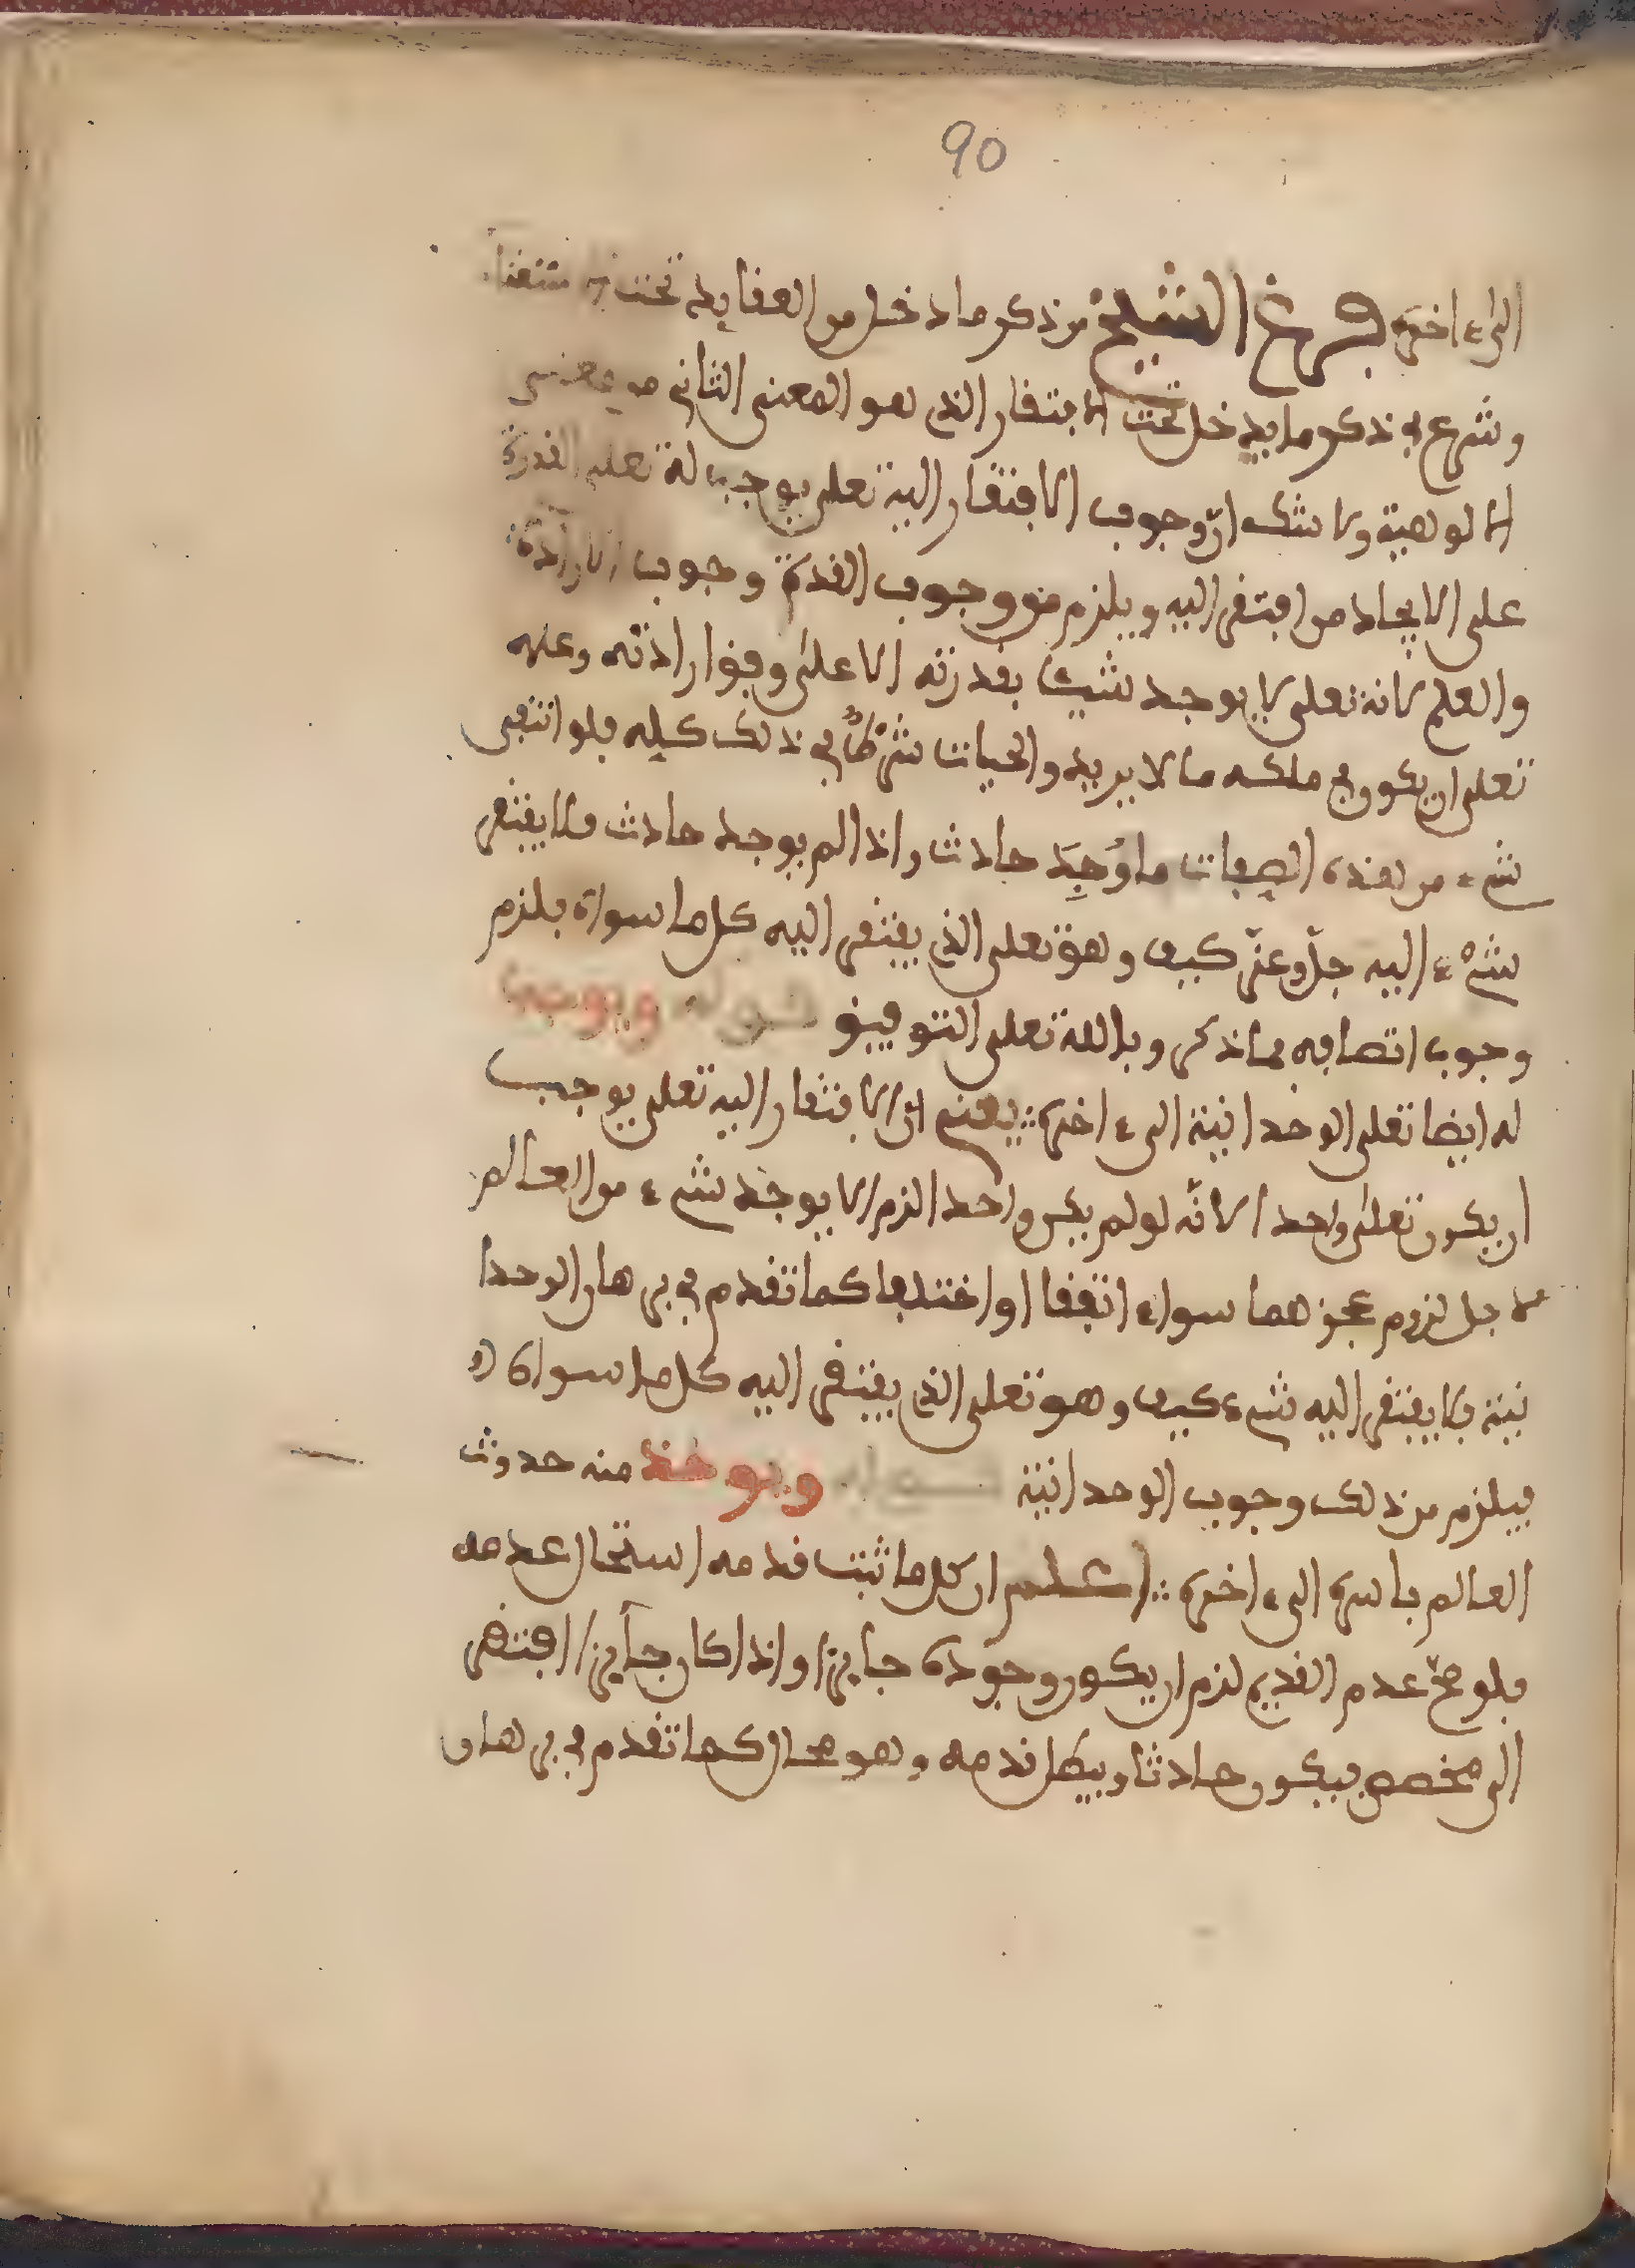 90
الىء اخره فرغ الشيخ من ذكر ما دخل من العقايد تحت الاستغناء
وشرع في ذكر ما يدخل تحت الافتقار الذي هو المعنى الثاني من معنى
الالوهية ولا شك ان وجوب الافتقار اليه تعلى يوجب له تعلى القدرة
على الايجاد من افتقر اليه ويلزم من وجوب القدرة وجوب الارادة
والعلم لانه تعلى لا يوجد شيئا بقدرته الا على وفق ارادته وعلمه
تعلى ان يكون في ملكه ما لا يريد والحيات شرطٌ في ذلك كله فلو انتفى
شيء من هذه الصفات ما وُجِدَ حادث واذا لم يوجد حادث فلا يفتقر
شيْء اليه جلّ وعزّ كيف وهو تعلى الذي يفتقر اليه كل ما سواه فلزم
وجوب اتصافه بما ذكر وبالله تعلى التوفيق قوله ويوجب
له ايضا تعلى الوحدانية الىء اخره يعني انّ الافتقار اليه تعلى يوجب
ان يكون تعلى واحدا لانّه لو لم يكن واحدا لزم الا يوجد شيء من العالم
لاجل لزوم عجزهما سواء اتفقا او اختلفا كما تقدم في برهان الوحدا
نية فلا يفتقر اليه شيء كيف وهو تعلى الذي يفتقر اليه كل ما سواه
فيلزم من ذلك وجوب الوحدانية قوله ويوخذ منه حدوث
العالم باسره الىء اخره اعلم ان كل ما ثبت قدمه استحال عدمه
فلو صحّ عدم القديم لزم ان يكون وجوده جايزا واذا كان جايزا افتقر
الى مخصص فيكون حادثا ويبطل قدمه وهو محال كما تقدم في برهان